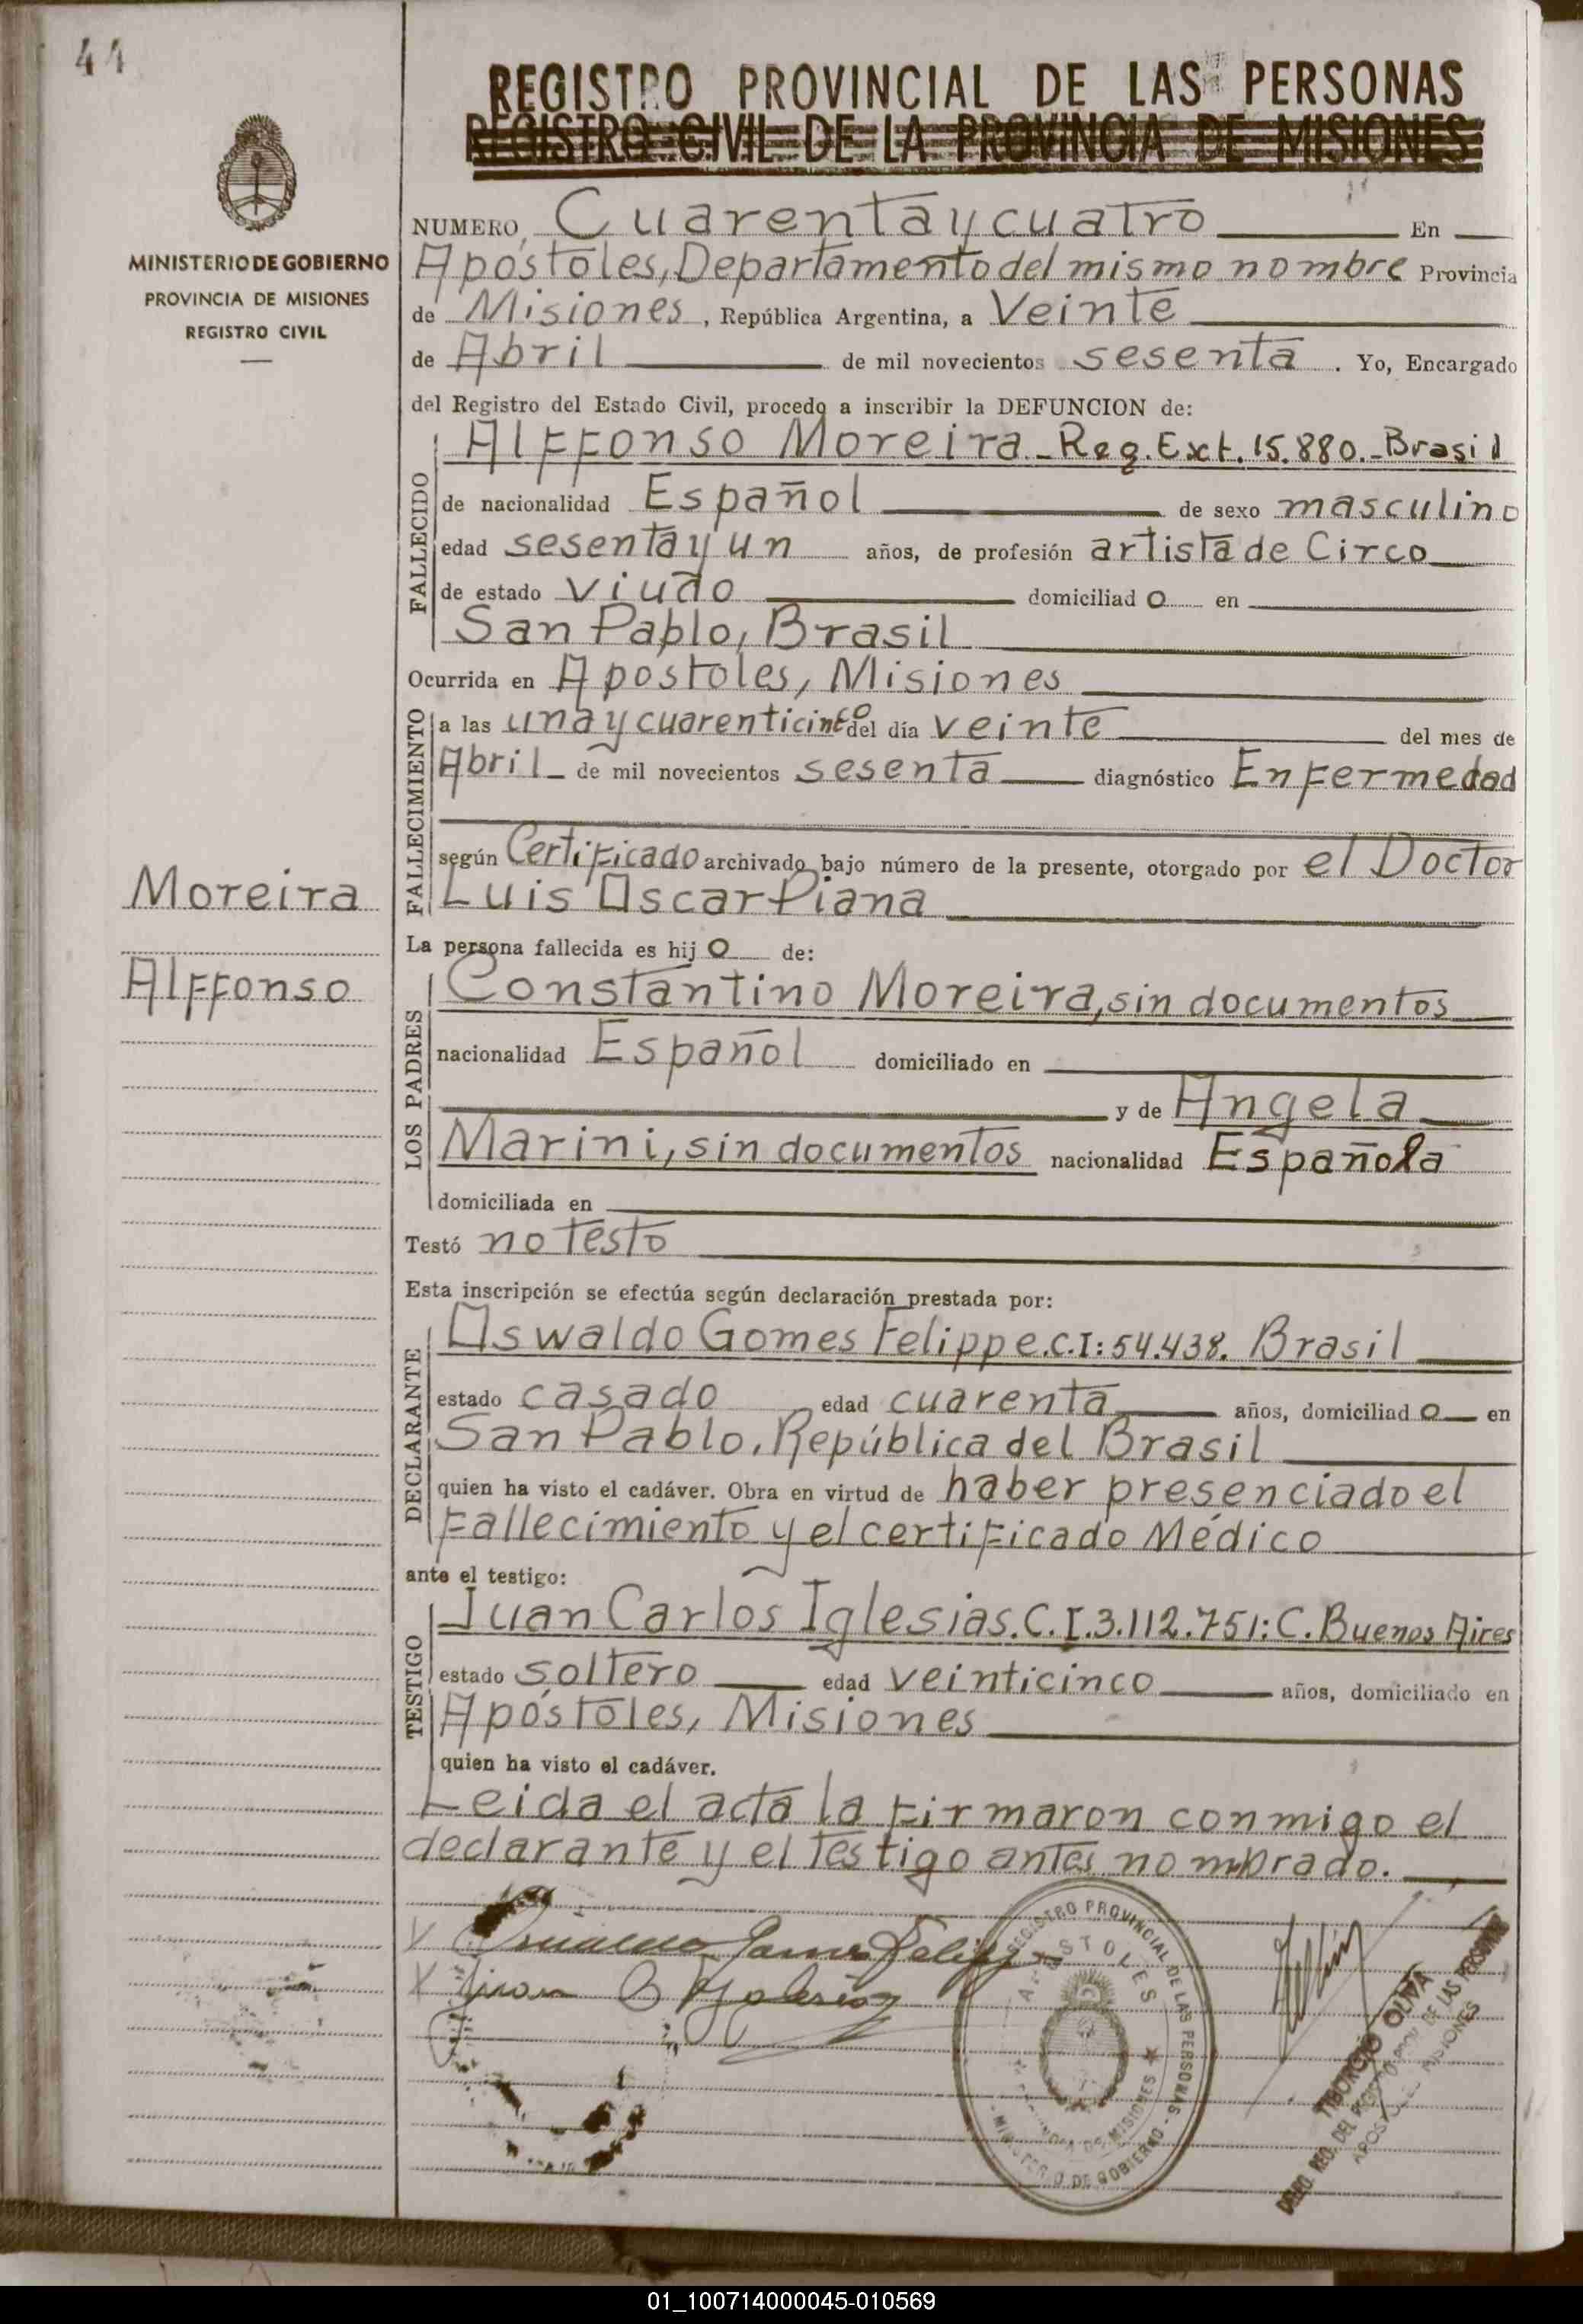 44
REGISTRO PROVINCIAL DE LAS PERSONAS
REGISTRO CIVIL DE LA PROVINCIA DE MISIONES
MINISTERIO DE GOBIERNO
PROVINCIA DE MISIONES
REGISTRO CIVIL
NUMERO Cuarenta y cuatro En
Apóstoles, Departamento del mismo nombre Provincia
de Misiones, República Argentina, a Veinte
de Abril de mil novecientos sesenta. Yo, Encargado
del Registro del Estado Civil, procedo a inscribir la DEFUNCION de:
FALLECIDO
Alffonso Moreira - Reg. Ext. 15.880.- Brasil
de nacionalidad Español de sexo masculino
edad sesenta y un años, de profesión artista de Circo
de estado viudo domiciliad o en
San Pablo, Brasil
Ocurrida en Apostoles, Misiones
FALLECIMIENTO
a las una y cuarenticinco del día veinte del mes de
Abril de mil novecientos sesenta diagnóstico Enfermedad
según Certificado archivado bajo número de la presente, otorgado por el Doctor
Luis Oscar Piana
Moreira
Alffonso
La persona fallecida es hij o de:
LOS PADRES
Constantino Moreira, sin documentos
nacionalidad Español domiciliado en
y de Angela
Marini, sin documentos nacionalidad Española
domiciliada en
Testó no testo
Esta inscripción se efectúa según declaración prestada por:
DECLARANTE
Oswaldo Gomes Felippe. C.I: 54.438. Brasil
estado casado edad cuarenta años, domiciliad o en
San Pablo, República del Brasil
quien ha visto el cadáver. Obra en virtud de haber presenciado el
fallecimiento y el certificado Médico
ante el testigo:
TESTIGO
Juan Carlos Iglesias. C.I. 3.112.751: C. Buenos Aires
estado soltero edad veinticinco años, domiciliado en
Apóstoles, Misiones
quien ha visto el cadáver.
Leida el acta la firmaron conmigo el
declarante y el testigo antes nombrado.
REGISTRO PROVINCIAL DE LAS PERSONAS
APOSTOLES
MISIONES
MINISTERIO DE GOBIERNO
TIBORCIO OLIVA
01_100714000045-010569